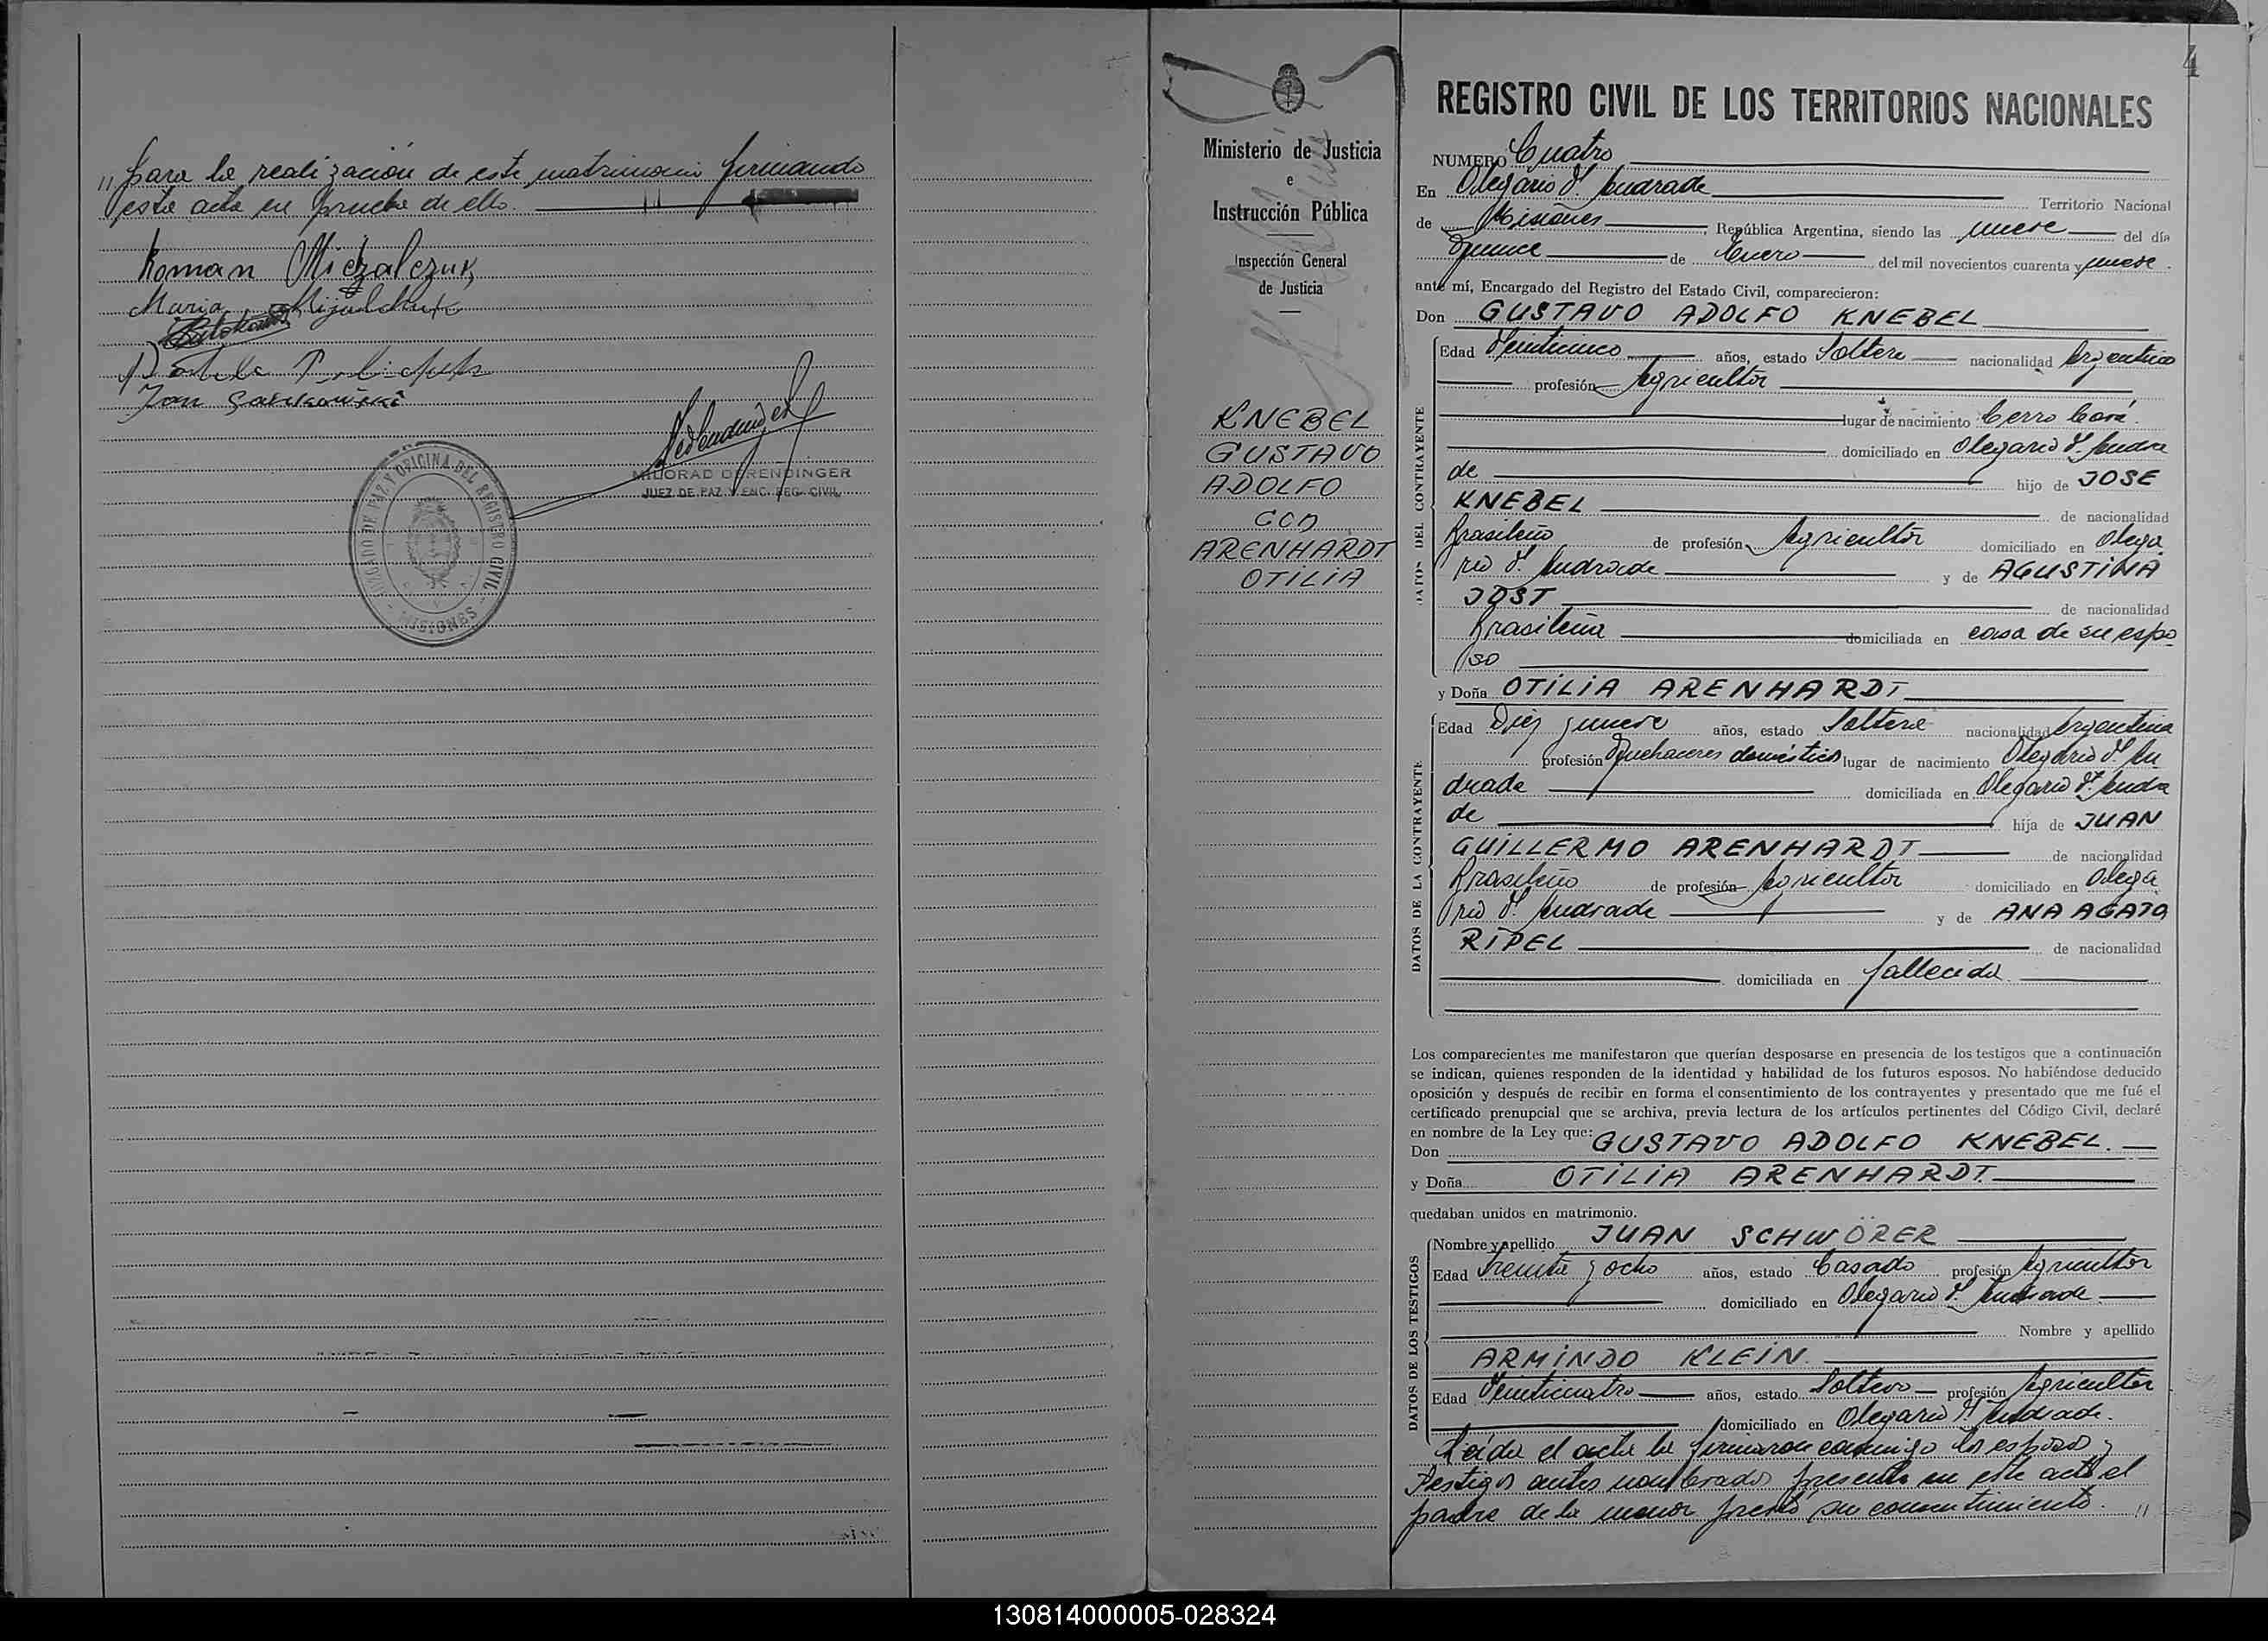 "para la realización de este matrimonio firmando
esta acta en prueba de ello.
Roman Miczalczuk
Maria
Jan
JUZGADO DE PAZ Y OFICINA DEL REGISTRO CIVIL
MISIONES
MILIORAD DERENDINGER
JUEZ DE PAZ Y ENC. REG. CIVIL
Ministerio de Justicia
e
Instrucción Pública
Inspección General
de Justicia
KNEBEL
GUSTAVO
ADOLFO
CON
ARENHARDT
OTILIA
4
REGISTRO CIVIL DE LOS TERRITORIOS NACIONALES
NUMERO Cuatro
En Olegario V. Andrade Territorio Nacional
de Misiones, República Argentina, siendo las nueve del día
quince de Enero del mil novecientos cuarenta y nueve.
ante mí, Encargado del Registro del Estado Civil, comparecieron:
Don GUSTAVO ADOLFO KNEBEL
DATOS DEL CONTRAYENTE
Edad Veinticinco años, estado Soltero nacionalidad Argentino
profesión Agricultor
lugar de nacimiento Cerro Corá.
domiciliado en Olegario V. Andra
de hijo de JOSE
KNEBEL de nacionalidad
Brasileño de profesión Agricultor domiciliado en Olega
rio V. Andrade y de AGUSTINA
JOST de nacionalidad
Brasileña domiciliada en casa de su espo
so
y Doña OTILIA ARENHARDT
DATOS DE LA CONTRAYENTE
Edad Diez y nueve años, estado Soltera nacionalidad Argentina
profesión Quehaceres domésticos lugar de nacimiento Olegario V. An
drade domiciliada en Olegario V. Andra
de hija de JUAN
GUILLERMO ARENHARDT de nacionalidad
Brasileño de profesión Agricultor domiciliado en Olega
rio V. Andrade y de ANA AGATA
RIPEL de nacionalidad
domiciliada en fallecida.
Los comparecientes me manifestaron que querían desposarse en presencia de los testigos que a continuación
se indican, quienes responden de la identidad y habilidad de los futuros esposos. No habiéndose deducido
oposición y después de recibir en forma el consentimiento de los contrayentes y presentado que me fué el
certificado prenupcial que se archiva, previa lectura de los artículos pertinentes del Código Civil, declaré
en nombre de la Ley que:
Don GUSTAVO ADOLFO KNEBEL.
y Doña OTILIA ARENHARDT.
quedaban unidos en matrimonio.
DATOS DE LOS TESTIGOS
Nombre y apellido JUAN SCHWÖRER
Edad Treinta y ocho años, estado Casado profesión Agricultor
domiciliado en Olegario V. Andrade.
Nombre y apellido
ARMINDO KLEIN.
Edad Veinticuatro años, estado Soltero profesión Agricultor
domiciliado en Olegario V. Andrade.
Leída el acta la firmaron conmigo los esposos y
testigos antes nombrados presente en este acto el
padre de la menor prestó su consentimiento. "
130814000005-028324